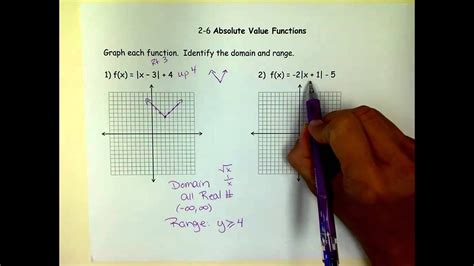 2-6 Absolute Value Functions
Graph each function. Identify the domain and range.
Rt 3
1) f(x) = |x - 3| + 4 up 4
2) f(x) = -2|x + 1| - 5
√x
1/x
Domain
all Real #
(-∞,∞)
Range: y ≥ 4